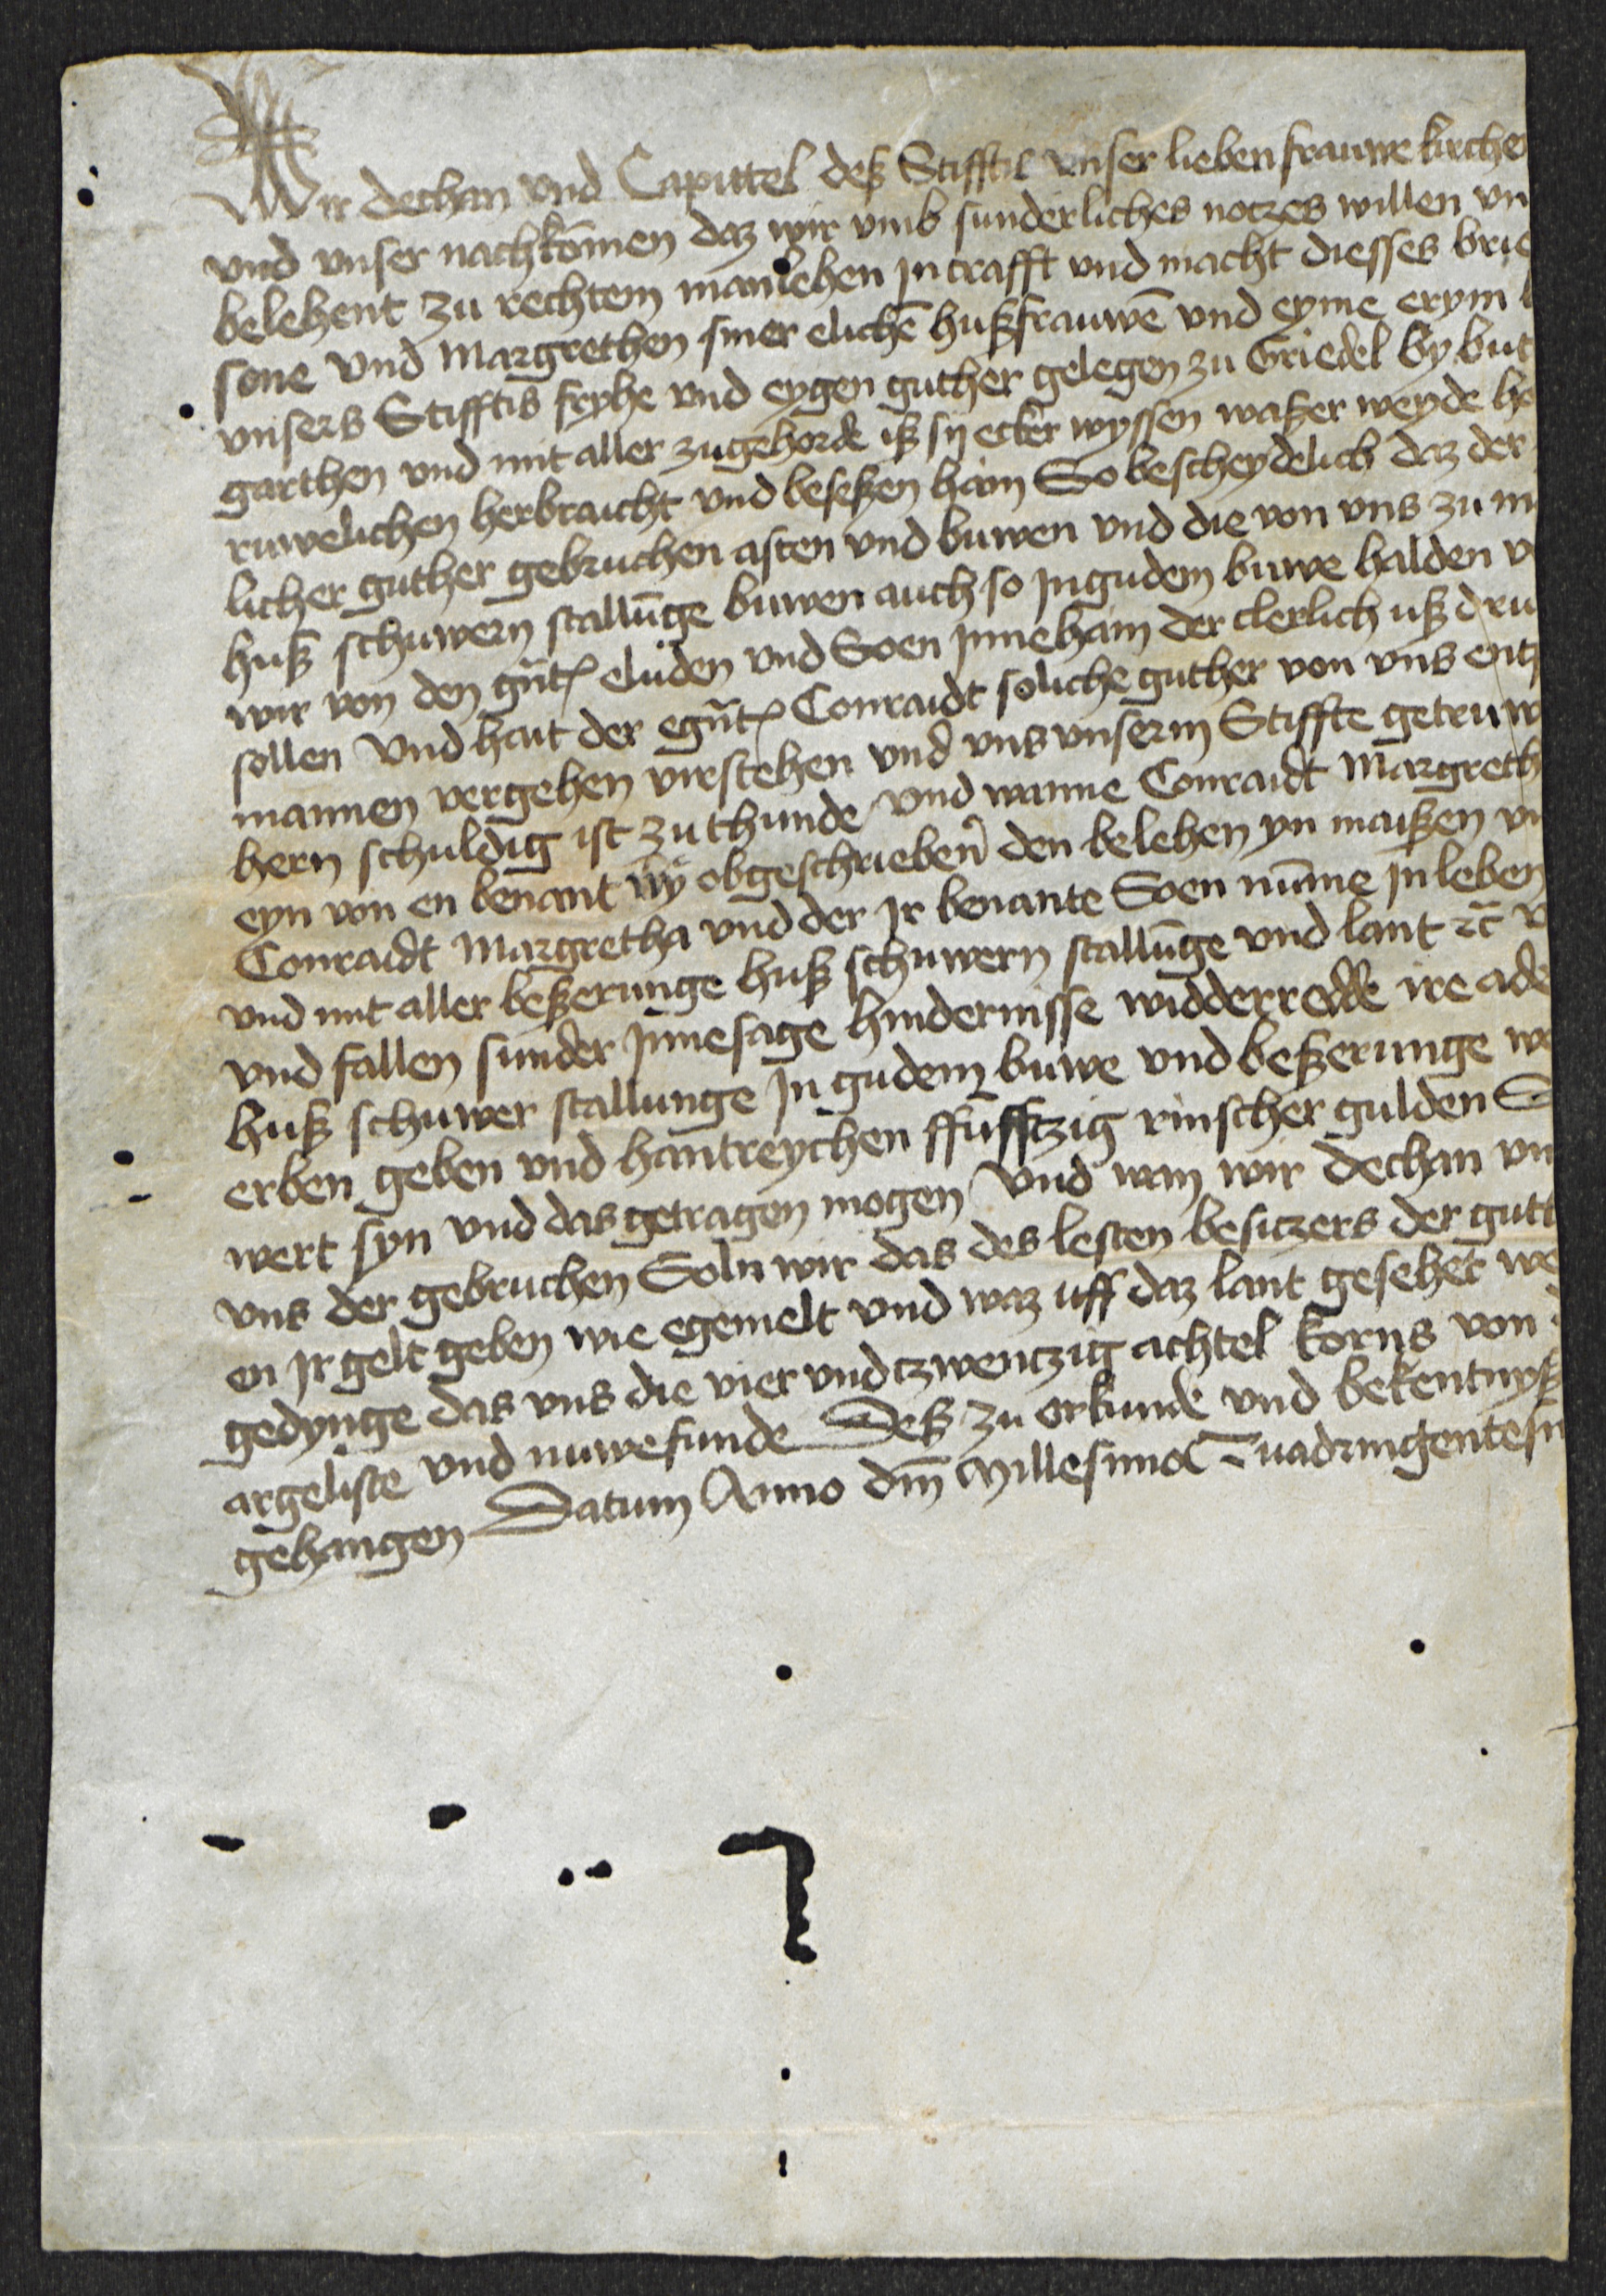 Wir dechan vnd Capittel deß Stifftis vnser lieben frauwe kirche
vnd vnser nachkōmen daz wir vmb sunderliches notzes willen vn
belehent zu rechtem manlehen in crafft vnd macht diesses brie
sone vnd Margrethen siner elichē hußfrauwē vnd eyme erym l
vnsers Stifftis fryhe vnd eygen guther gelegen zu Griedel by but
garthen vnd mit aller zugehorde iß sij ecker wyssen waßer weyde he
ruwelichen herbraicht vnd beseßen hain So bescheydelich daz der
licher guther gebruchen asten vnd buwen vnd die von vns zu m
huß schuwern stallūge buwen auch so in gudem buwe halden v
wir von den gn̄t eluden vnd Soen inne hain der clerlich uß dru
sollen Vnd hait der egn̄t Conraidt soliche guther von vns entp
mannen vergehen virstehen vnd vns vnserm Stiffte getruw
hern schuldig ist zu thunde Vnd wanne Conraidt Margreth
eyn von en benant wy obgeschrieben den belehen yn maißen vn
Conraidt Margretha vnd der Ir benante Soen nūme in leben
vnd mit aller beßerunge huß schuwern stallūge vnd lant ꝛc̄ v
vnd fallen sunder innesage hindernisse widderredde ire ade
huß schuwer stallunge in gudem buwe vnd beßerunge we
erben geben vnd hantreychen ffufftzig rinscher gulden S
wert syn vnd das getragen mogen Vnd wan wir dechan vn
vns der gebruchen Soln wir das des lesten besitzers der gutt
en Ir gelt geben wie egemelt vnd waz uff daz lant gesehet we
gedynge das vns die vier vnd tzwentzig achtel korns von
argeliste vnd nuwefunde Deß zu orkunde vnd bekentnyß
gehangen Datum Anno dm̄ Millesimo Quadringentesi